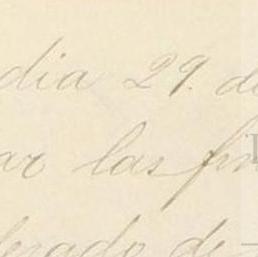 dia 29. de
ar las fin
derado de